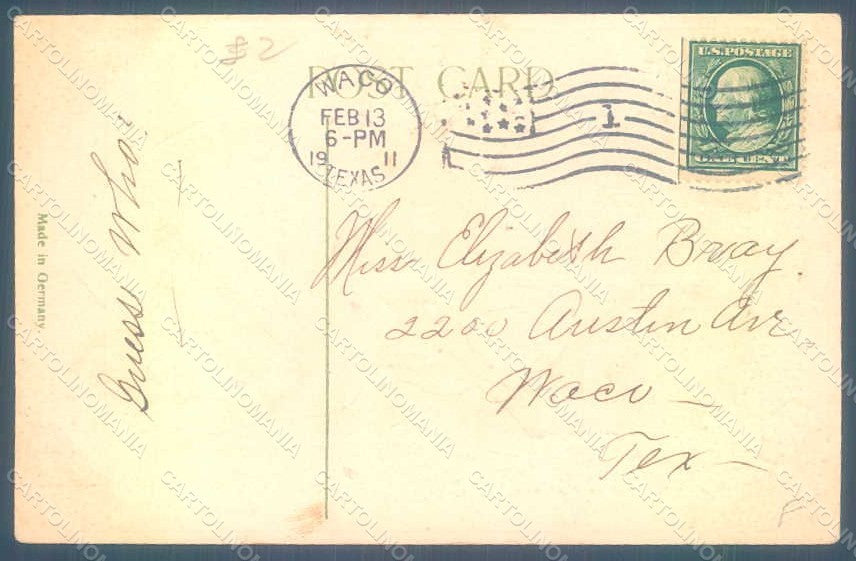 $2
POST CARD
WACO
FEB 13
6-PM
19 11
TEXAS
1
U.S. POSTAGE
ONE CENT
Guess Who?
Made in Germany.
Miss Elizabeth Bray.
2200 Austin Ave
Waco —
Tex —
CARTOLINOMANIA